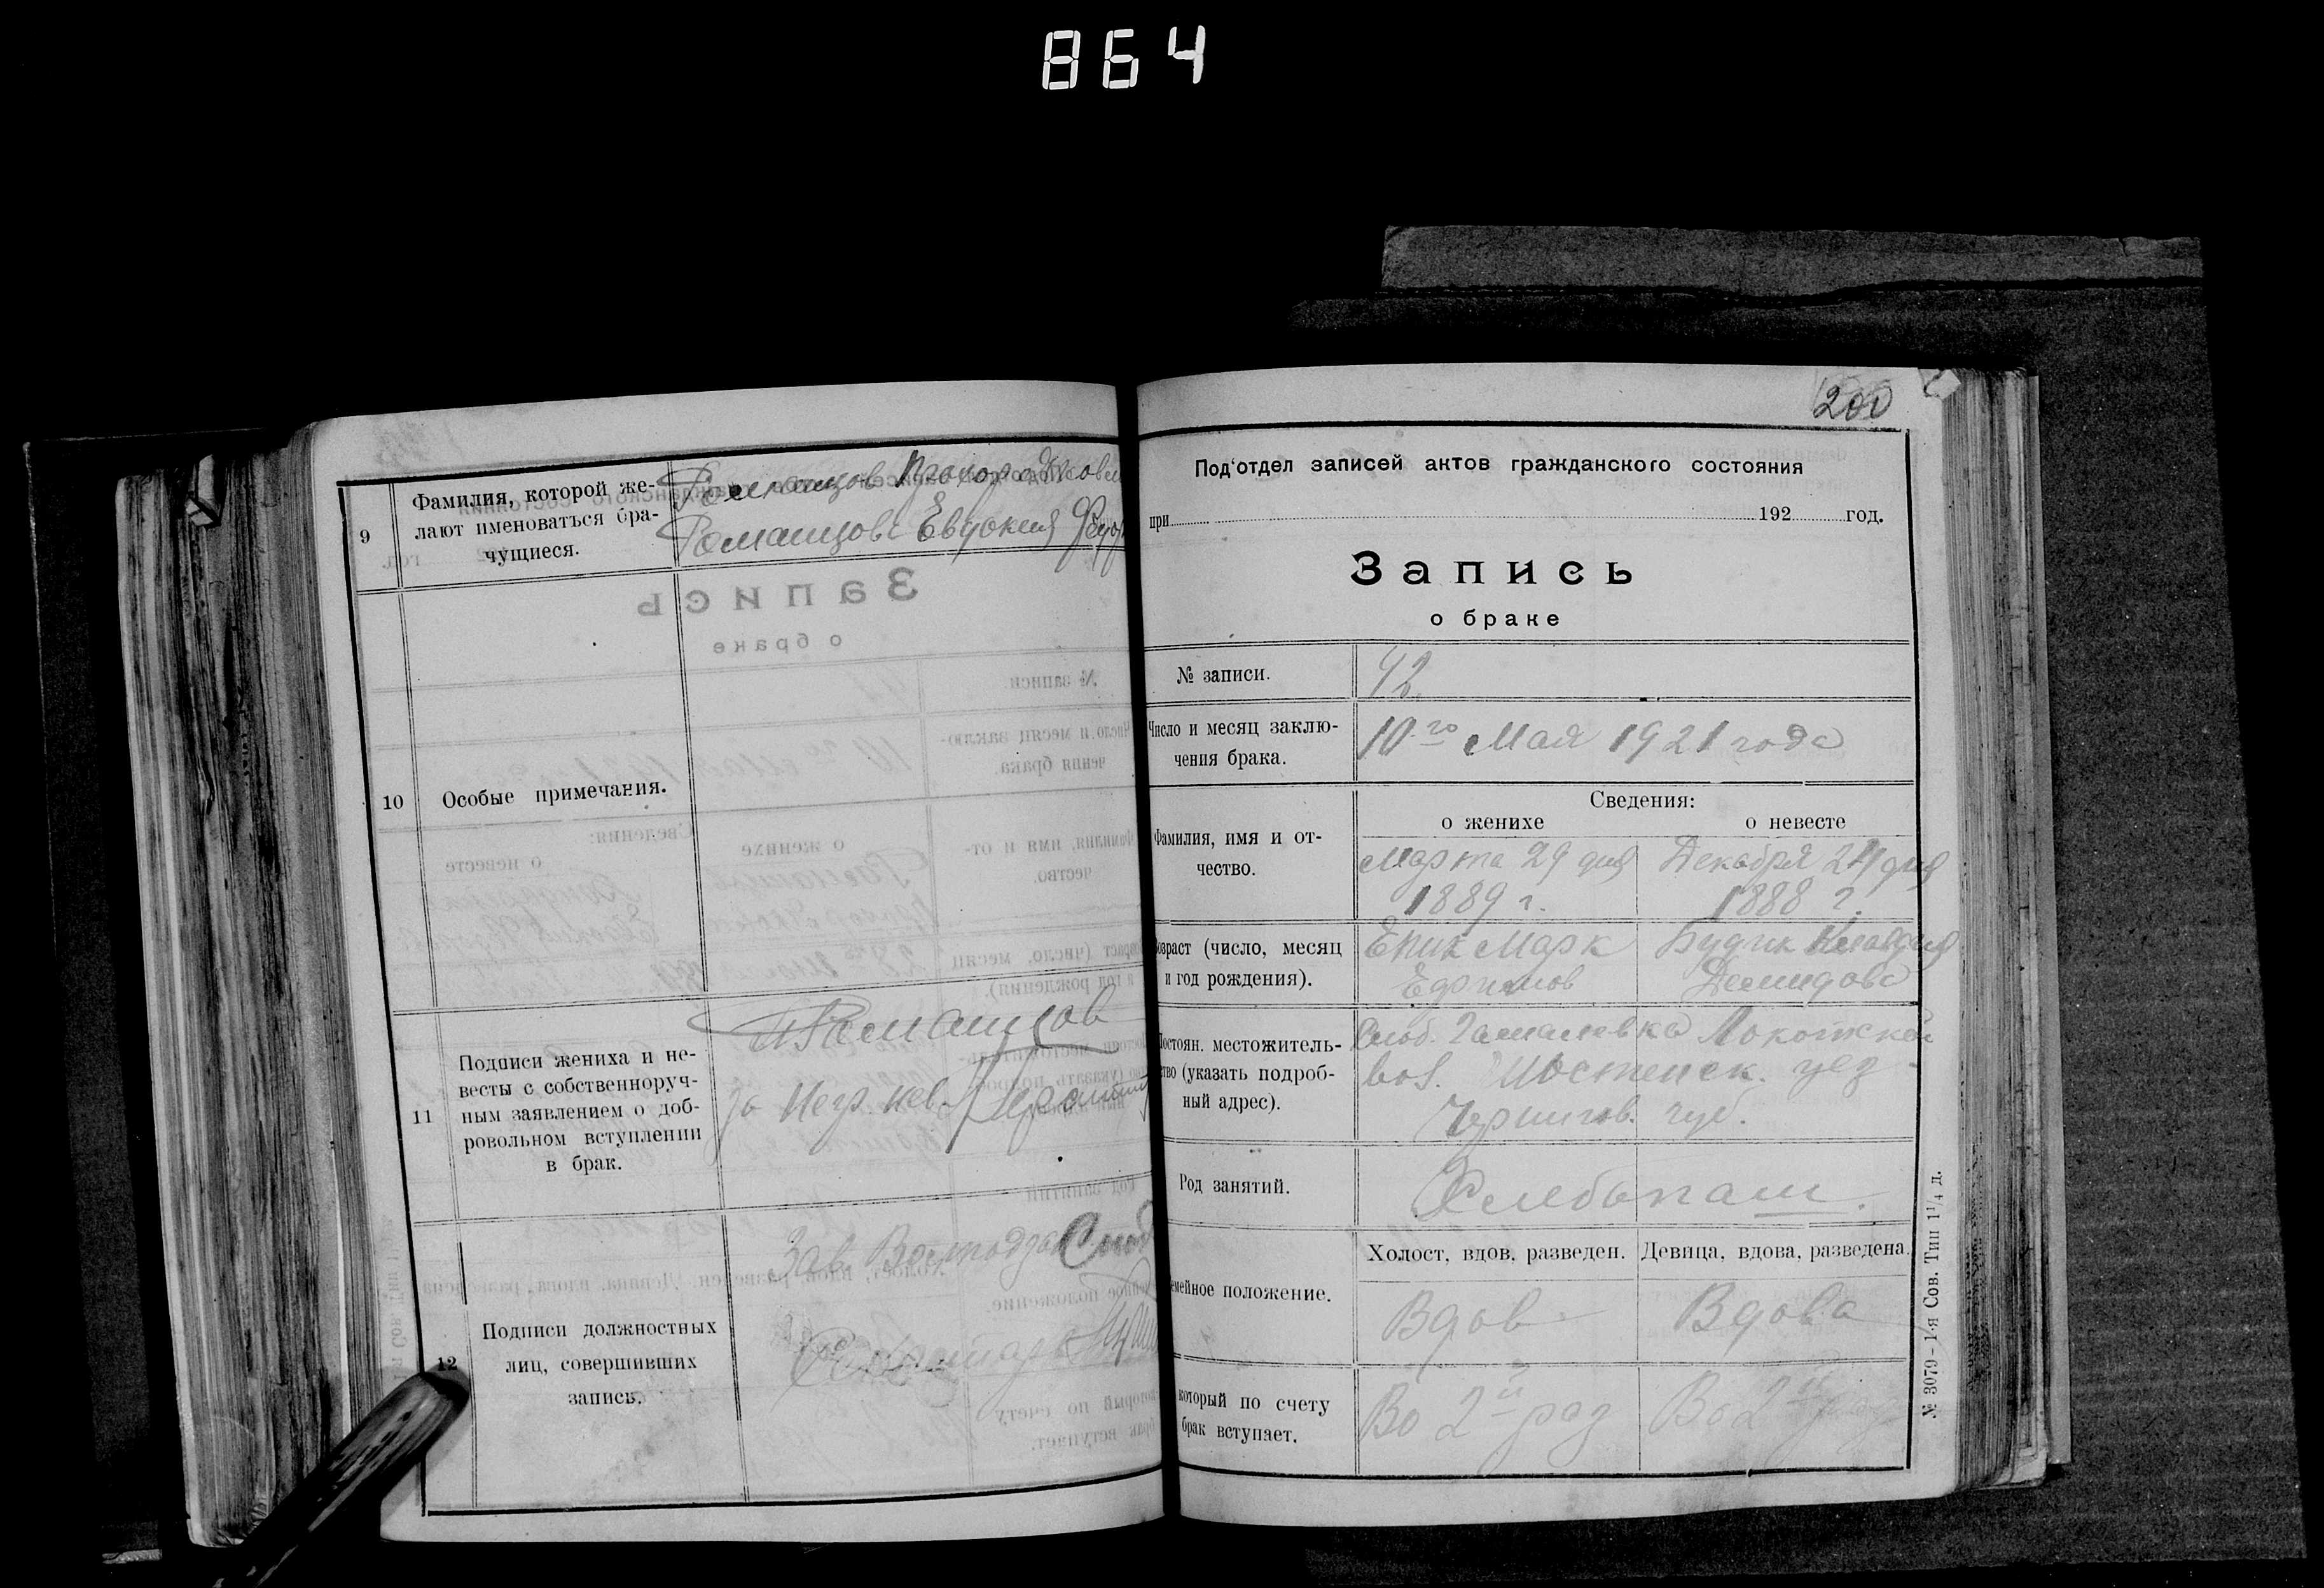 864
9
Фамилия, которой же-
лают именоваться бра-
чущиеся.
Романцов Прохор
Романцова Евдокия
10
Особые примечания.
11
Подписи жениха и не-
весты с собственноруч-
ным заявлением о доб-
ровольном вступлении
в брак.
Романцов
за негр. нев.
12
Подписи должностных
лиц, совершивших
запись.
Зав.
Секретарь
200
Под'отдел записей актов гражданского состояния
при 192 год.
Запись
о браке
№ записи.
42
Число и месяц заклю-
чения брака.
10го Мая 1921 года
Сведения:
о женихе о невесте
Фамилия, имя и от-
чество.
Марта 29 дня
1889 г.
Декабря 24 дня
1888 г.
Возраст (число, месяц
и год рождения).
Епик Марк
Ефимов
Будик Клавдия
Демидова
Постоян. местожитель-
ство (указать подроб-
ный адрес).
Слоб. Гамалевка Локотской
вол. Шостенск. уез.
Чернигов. губ.
Род занятий.
Хлебопаш.
Семейное положение.
Холост, вдов, разведен. Девица, вдова, разведена.
Вдов Вдова
который по счету
брак вступает.
Во 2й раз Во 2й раз
№ 3079-1-я Сов. Тип 1¹/₄ д.